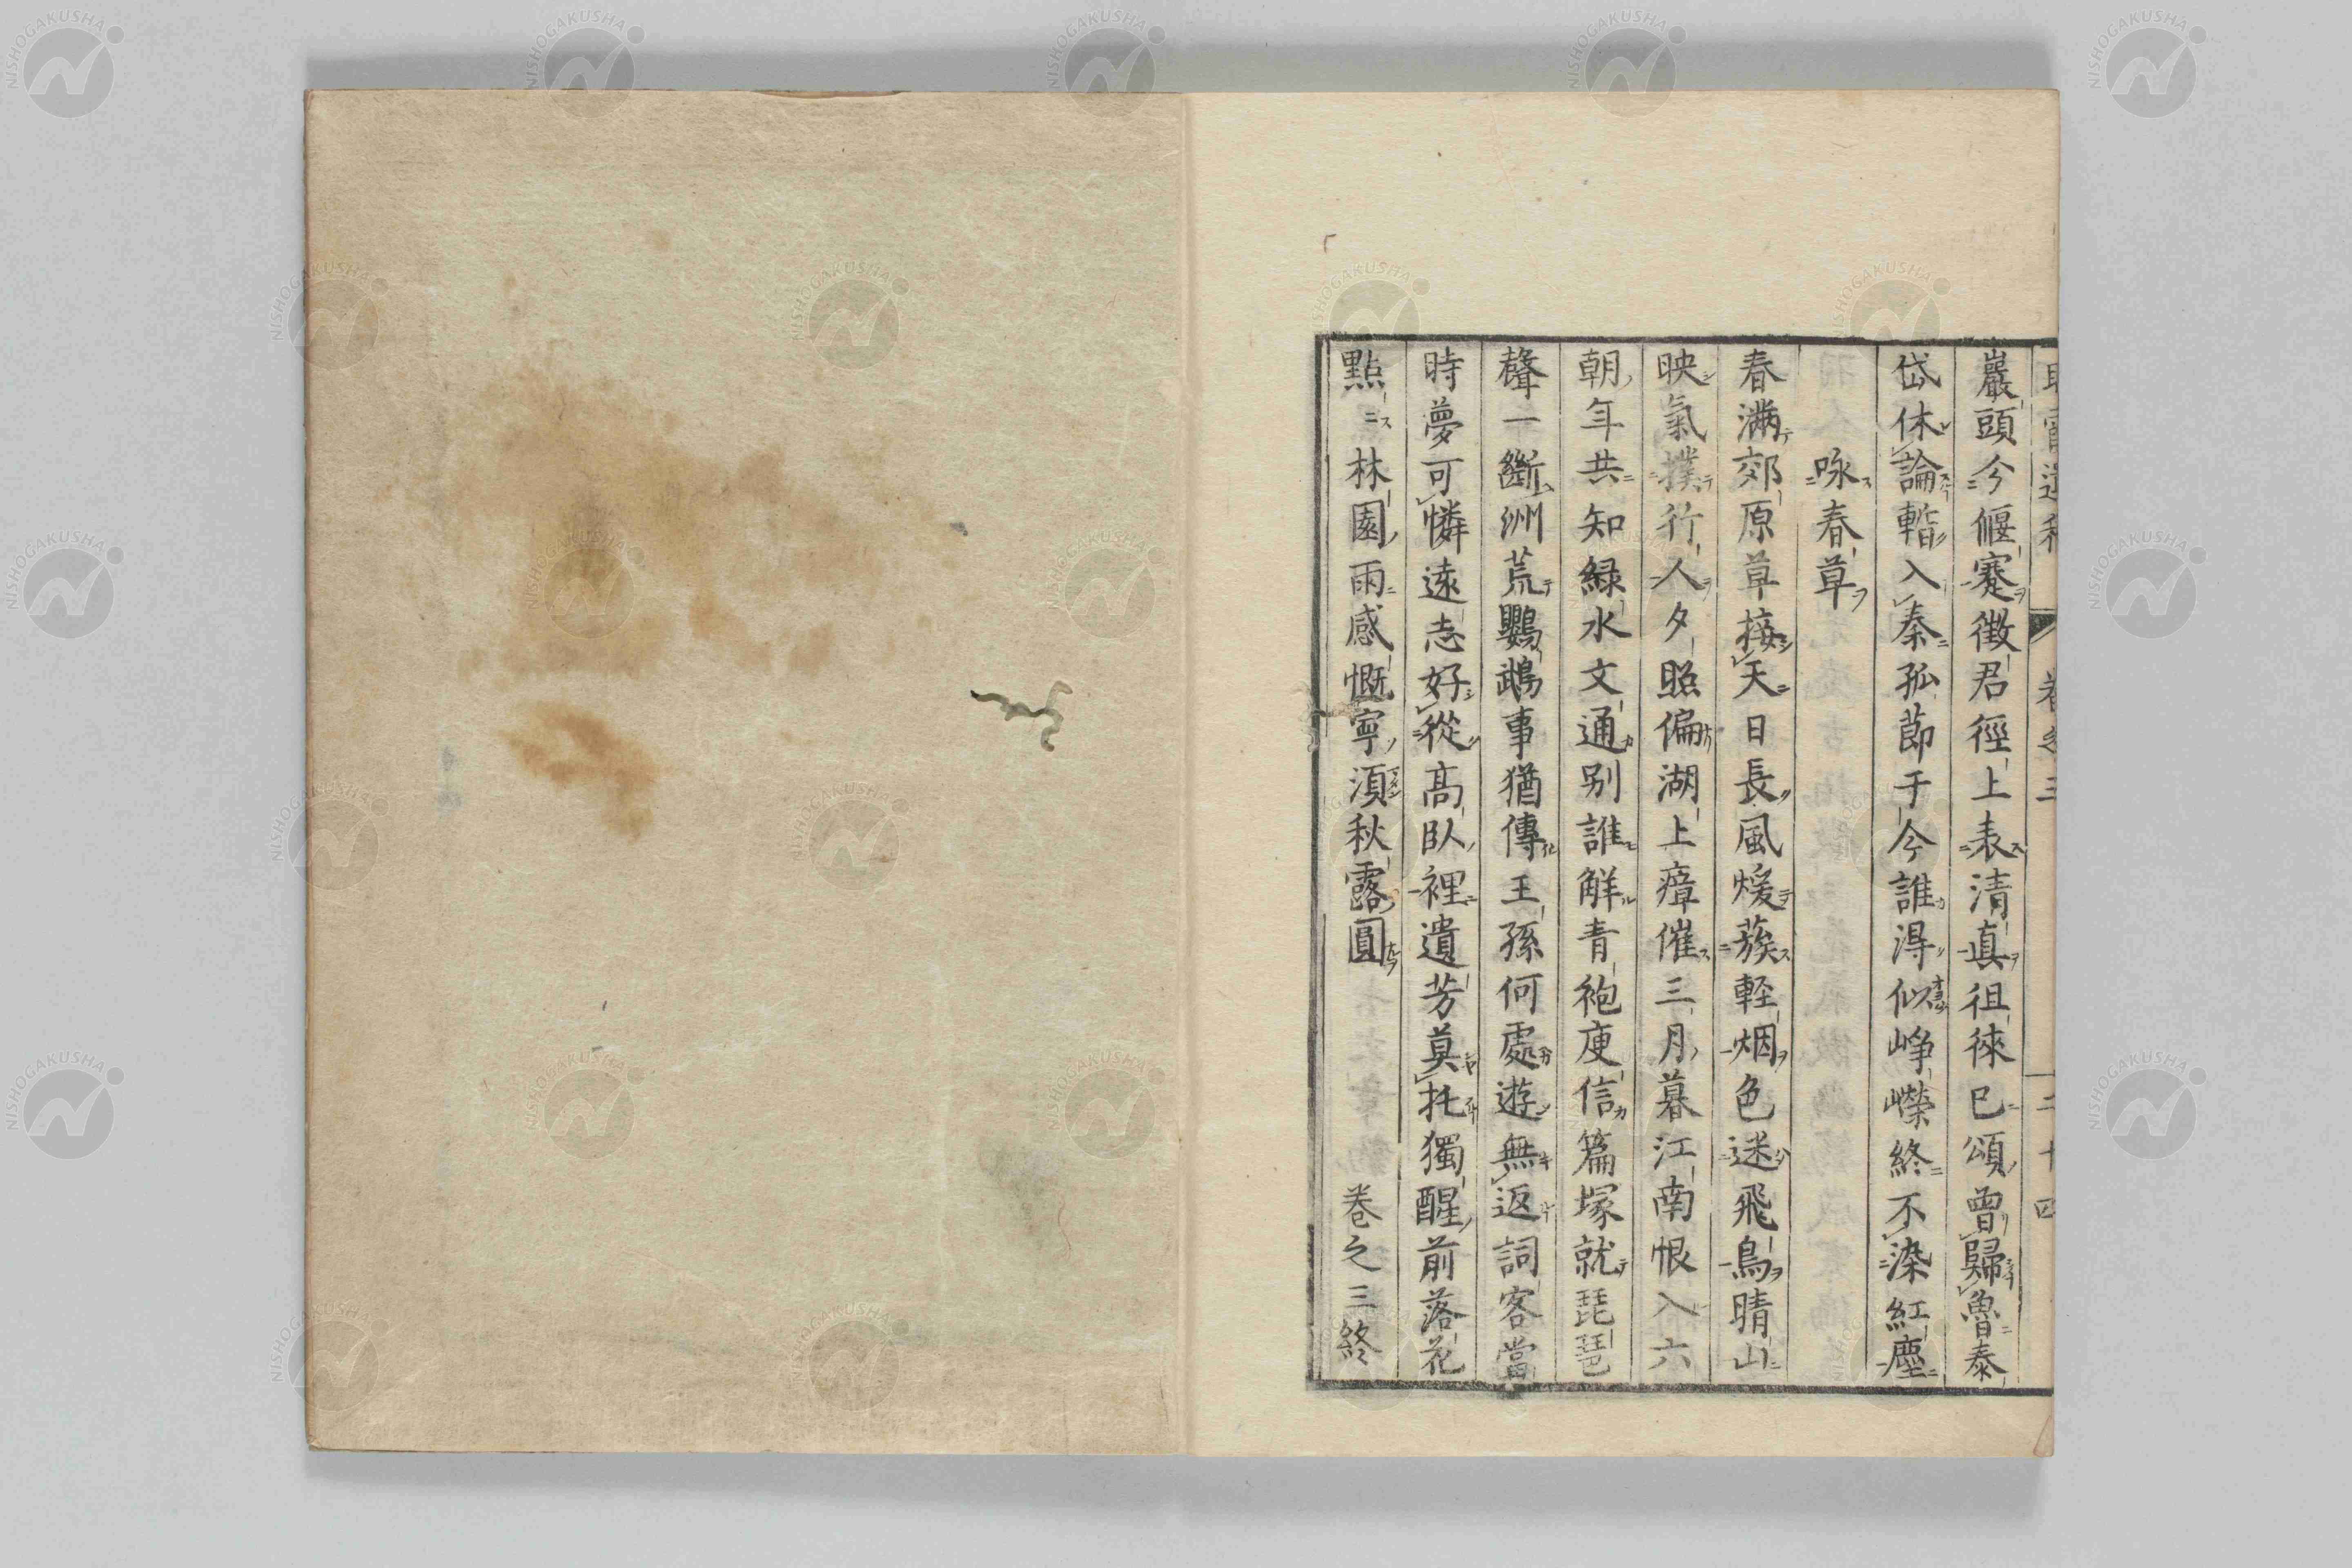 巖頭今偃蹇徵君徑上表清真徂徠已頌曾歸魯泰
岱休論輕入秦孤節于今誰得似崢嶸終不染紅塵
咏春草
春滿郊原草接天日長風煖蔟輕烟色迷飛鳥晴山
映氣撲行人夕照偏湖上瘴催三月暮江南恨入六
朝年共知綠水文通別誰解青袍庾信篇塚就琵琶
聲一斷洲荒鸚鵡事猶傳王孫何處遊無返詞客當
時夢可憐遠志好從高臥裡遺芳莫托獨醒前落花
點點林園雨感慨寧須秋露圓
卷之三終
NISHOGAKUSHA